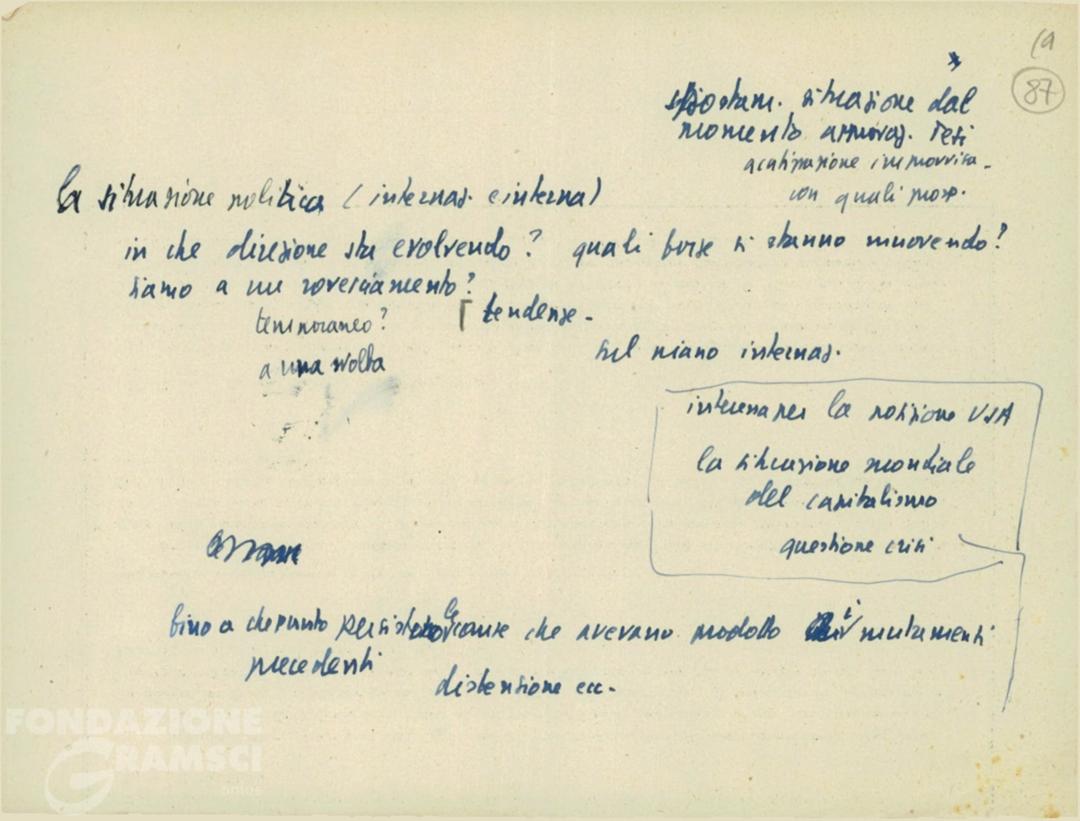 19
87
spostam. situazione dal
momento approvaz. Tesi
acutizzazione improvvisa -
con quali prosp.
la situazione politica (internaz. e interna)
in che direzione sta evolvendo? quali forze si stanno muovendo?
siamo a un rovesciamento?
temporaneo?
tendenze -
a una svolta
sul piano internaz.
la posizione USA
la situazione mondiale
del capitalismo
questione crisi
fino a che punto le cause che avevano prodotto i mutamenti
precedenti
distensione ecc.
FONDAZIONE
GRAMSCI
onlus